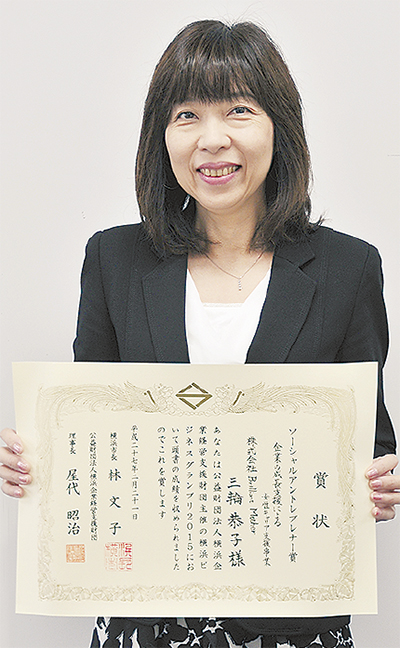 賞状
ソーシャルアントレプレナー賞
企業の広報支援による
女性のキャリア支援事業
株式会社Brilliant Maker
三輪恭子様
あなたは公益財団法人横浜企
業経営支援財団主催の横浜ビ
ジネスグランプリ2015にお
いて頭書の成績を収められました
のでこれを賞します
平成二十七年二月二十一日
横浜市長 林文子
公益財団法人横浜企業経営支援財団
理事長 屋代昭治